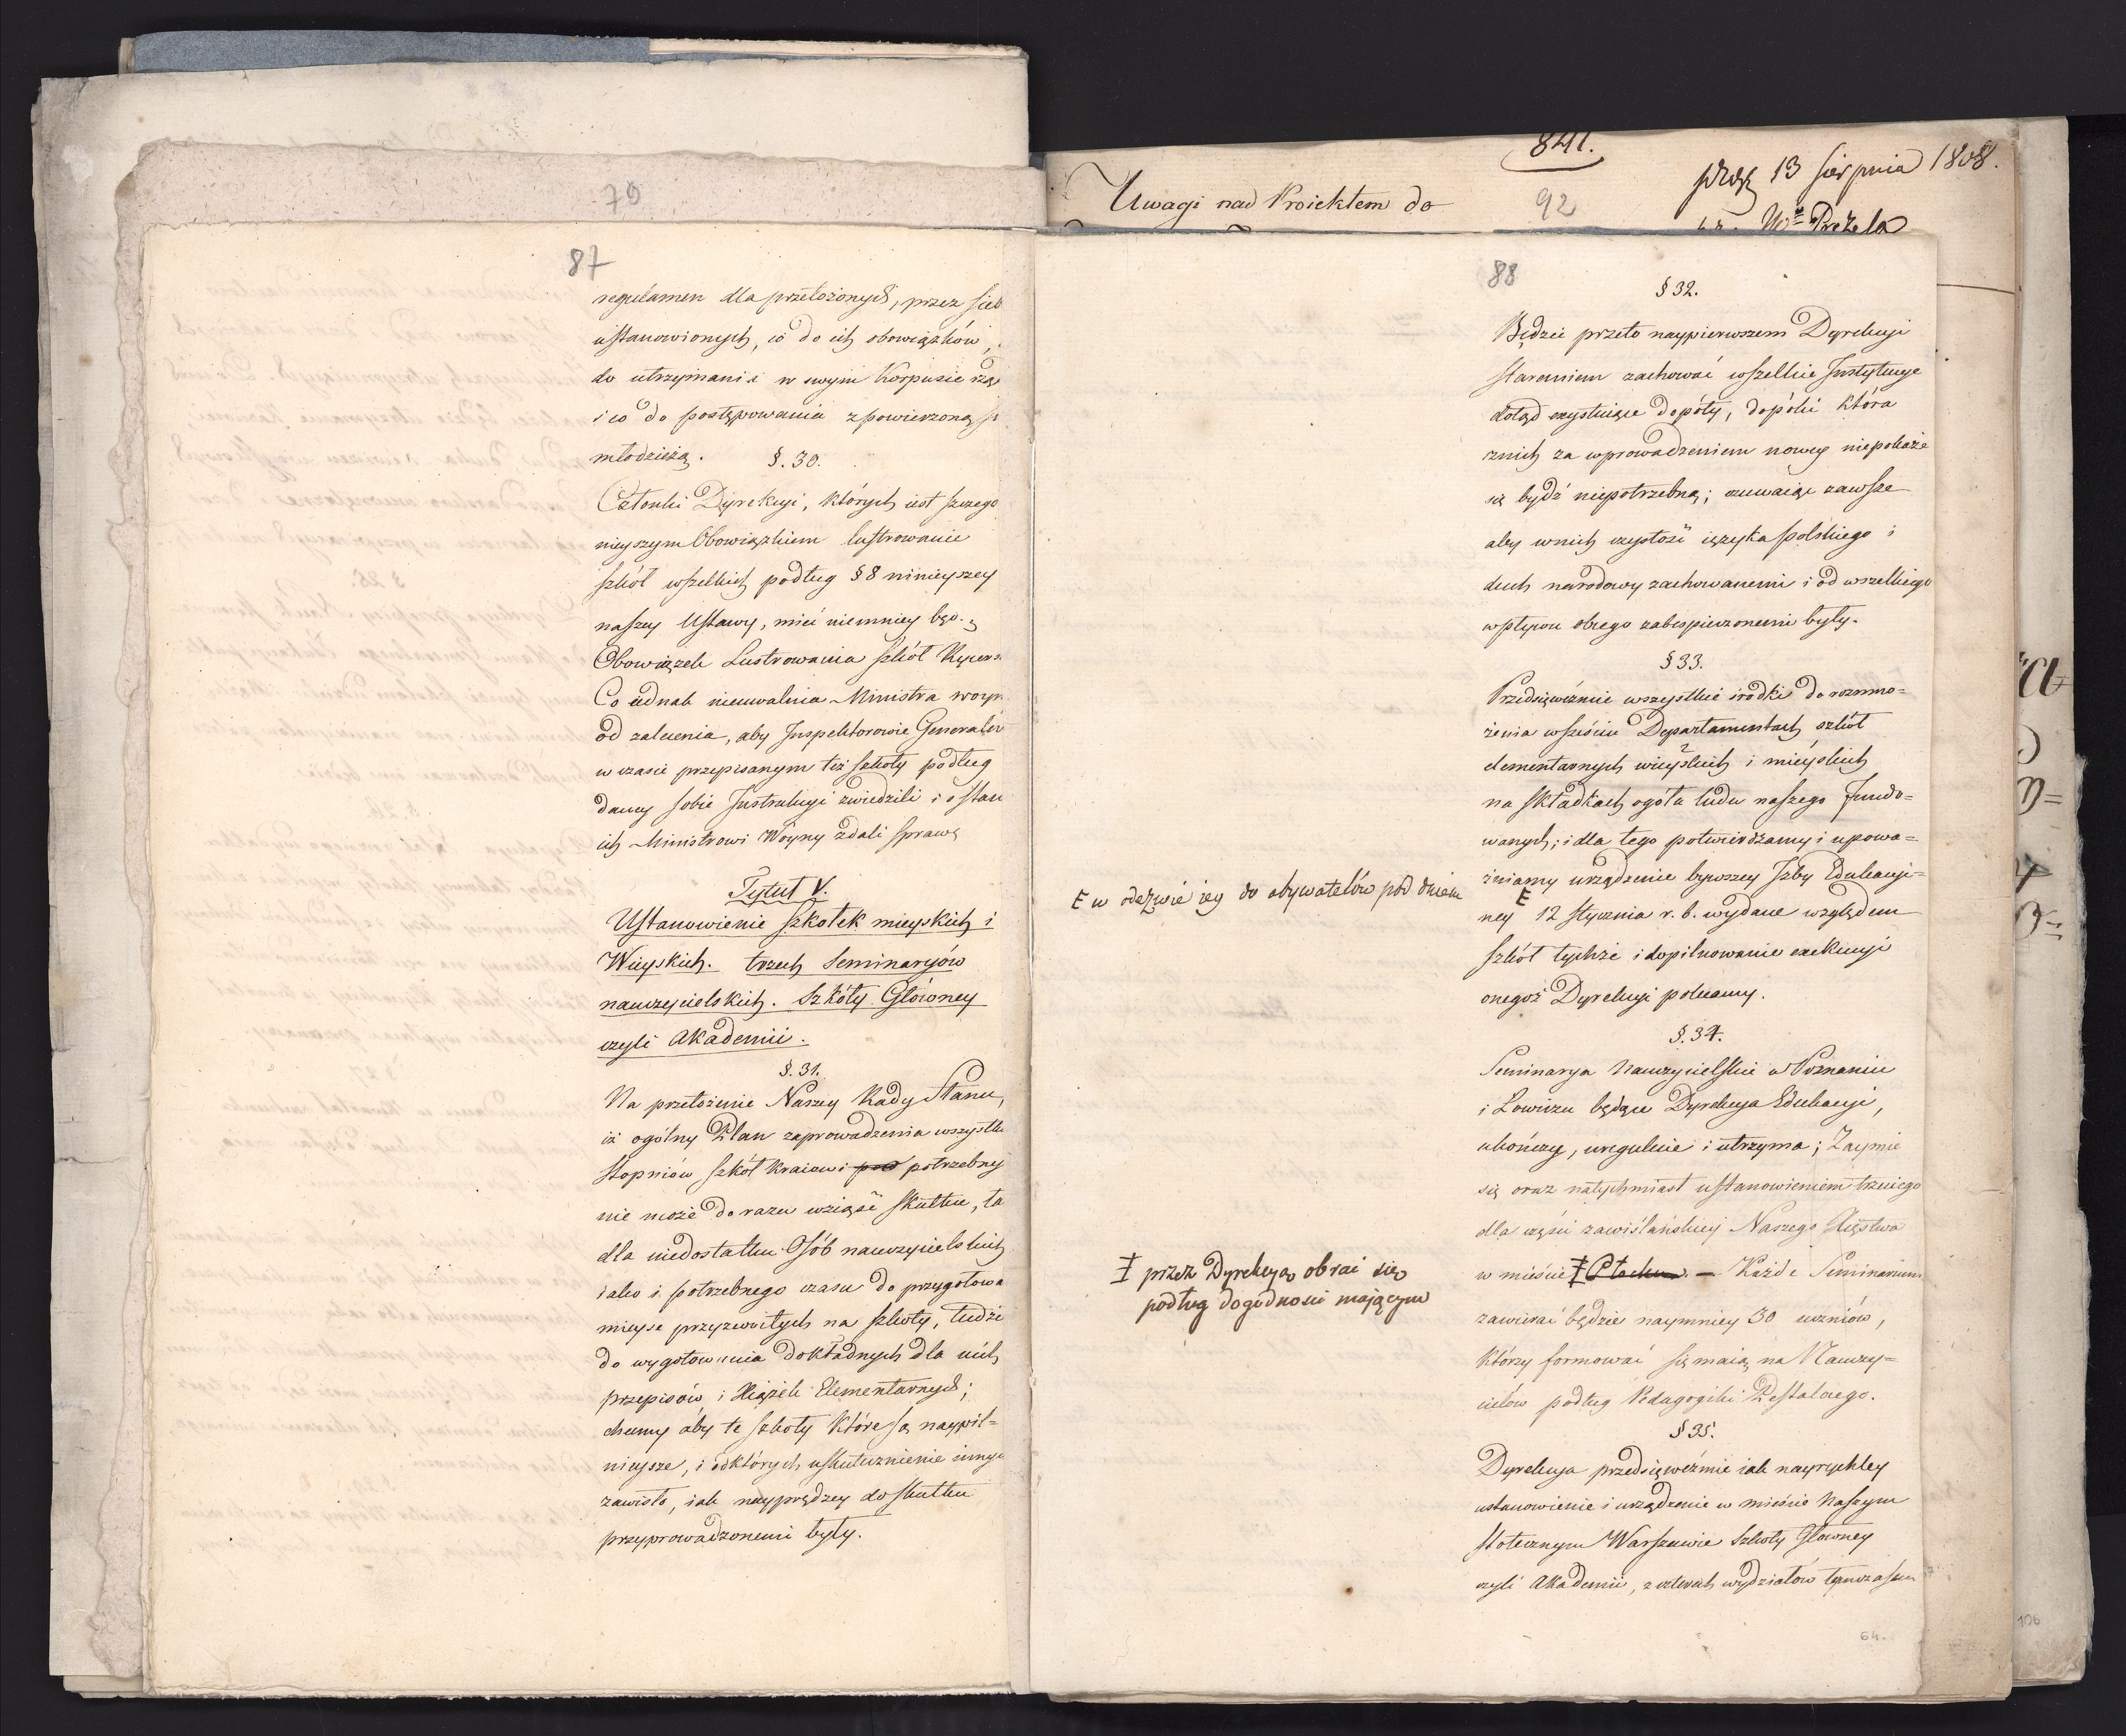 79
87
regulamen dla przełożonych, przez sieb
ustanowionych, co do ich obowiązków,
do utrzymania w swym Korpusie rzą
i co do postępowania z powierzoną so
młodzieżą.
§. 30.
Członki Dyrekcyi, których iest szczego
nieyszym Obowiązkiem lustrowanie
szkół wszelkich podług § 8 ninieyszey
naszey Ustawy, mieć niemniey będą
Obowiązek Lustrowania szkół Rycers
Co iednak nieuwalnia Ministra woyn
od zalecenia, aby Inspektorowie Generalni
w czasie przepisanym też szkoły podług
daney sobie Instrukcyi zwiedzili i o stan
ich Ministrowi Woyny zdali sprawę
Tytuł V.
Ustanowienie szkołek mieyskich i
Wieyskich. trzech Seminaryów
nauczycielskich. Szkoły Główney
czyli Akademii.
§. 31.
Na przełożenie Naszey Rady Stanu,
iż ogólny Plan zaprowadzenia wszystki
stopniów szkół kraiowi potrzebny
nie może do razu wziąść skutku, ta
dla niedostatku Osób nauczycielskich
iako i potrzebnego czasu do przygotowa
mieysc przyzwoitych na szkoły, tudzi
do wygotowania dokładnych dla nich
przepisów i Xiążek Elementarnych;
chcemy aby te szkoły które są naypil=
nieysze, i od których uskutecznienie innyc
zawisło, iak nayprędzey do skutku
przyprowadzonemi były.
841.
Uwagi nad Proiektem do
92
13 sierpnia 1808.
88
§ 32.
Będzie przeto naypierwszem Dyrekcyi
staraniem zachować wszelkie Instytucye
dotąd exystuiące dopóty, dopóki która
z nich za wprowadzeniem nowey niepokaże
się bydź niepotrzebną; czuwaiąc zawsze
aby w nich czystość ięzyka polskiego i
duch narodowy zachowanemi i od wszelkiego
wpływu obcego zabespieczonemi były.
§ 33.
Przedsięweźmie wszystkie środki do rozmno=
żenia w sześciu Departamentach szkół
elementarnych wieyskich i mieyskich
na składkach ogółu ludu naszego fundo=
wanych; i dla tego potwierdzamy i upowa=
żniamy urządzenie bywszey Izby Edukacyi=
E w odezwie iey do obywatelów pod dniem
ney E 12 stycznia r. b. wydane względem
szkół tychże i dopilnowanie exekucyi
onegoż Dyrekcyi polecamy.
§. 34.
Seminarya Nauczycielskie w Poznaniu
i Łowiczu będące Dyrekcya Edukacyi,
ukończy, ureguluie i utrzyma; Zaymie
się oraz natychmiast ustanowieniem trzeciego
dla części zawiślańskiey Naszego Xięstwa
w mieście Ŧ Płocku. — Każde Seminarium
Ŧ przez Dyrekcyą obrać się
podług dogodności mającym
zawierać będzie naymniey 30 uczniów,
którzy formować się maią na Nauczy=
cielów podług Pedagogiki Pestalocego.
§ 35.
Dyrekcya przedsięweźmie iak nayrychley
ustanowienie i urządzenie w mieście Naszym
stołecznym Warszawie Szkoły Główney
czyli Akademii, z czterech wydziałów tymczasem
64.
106